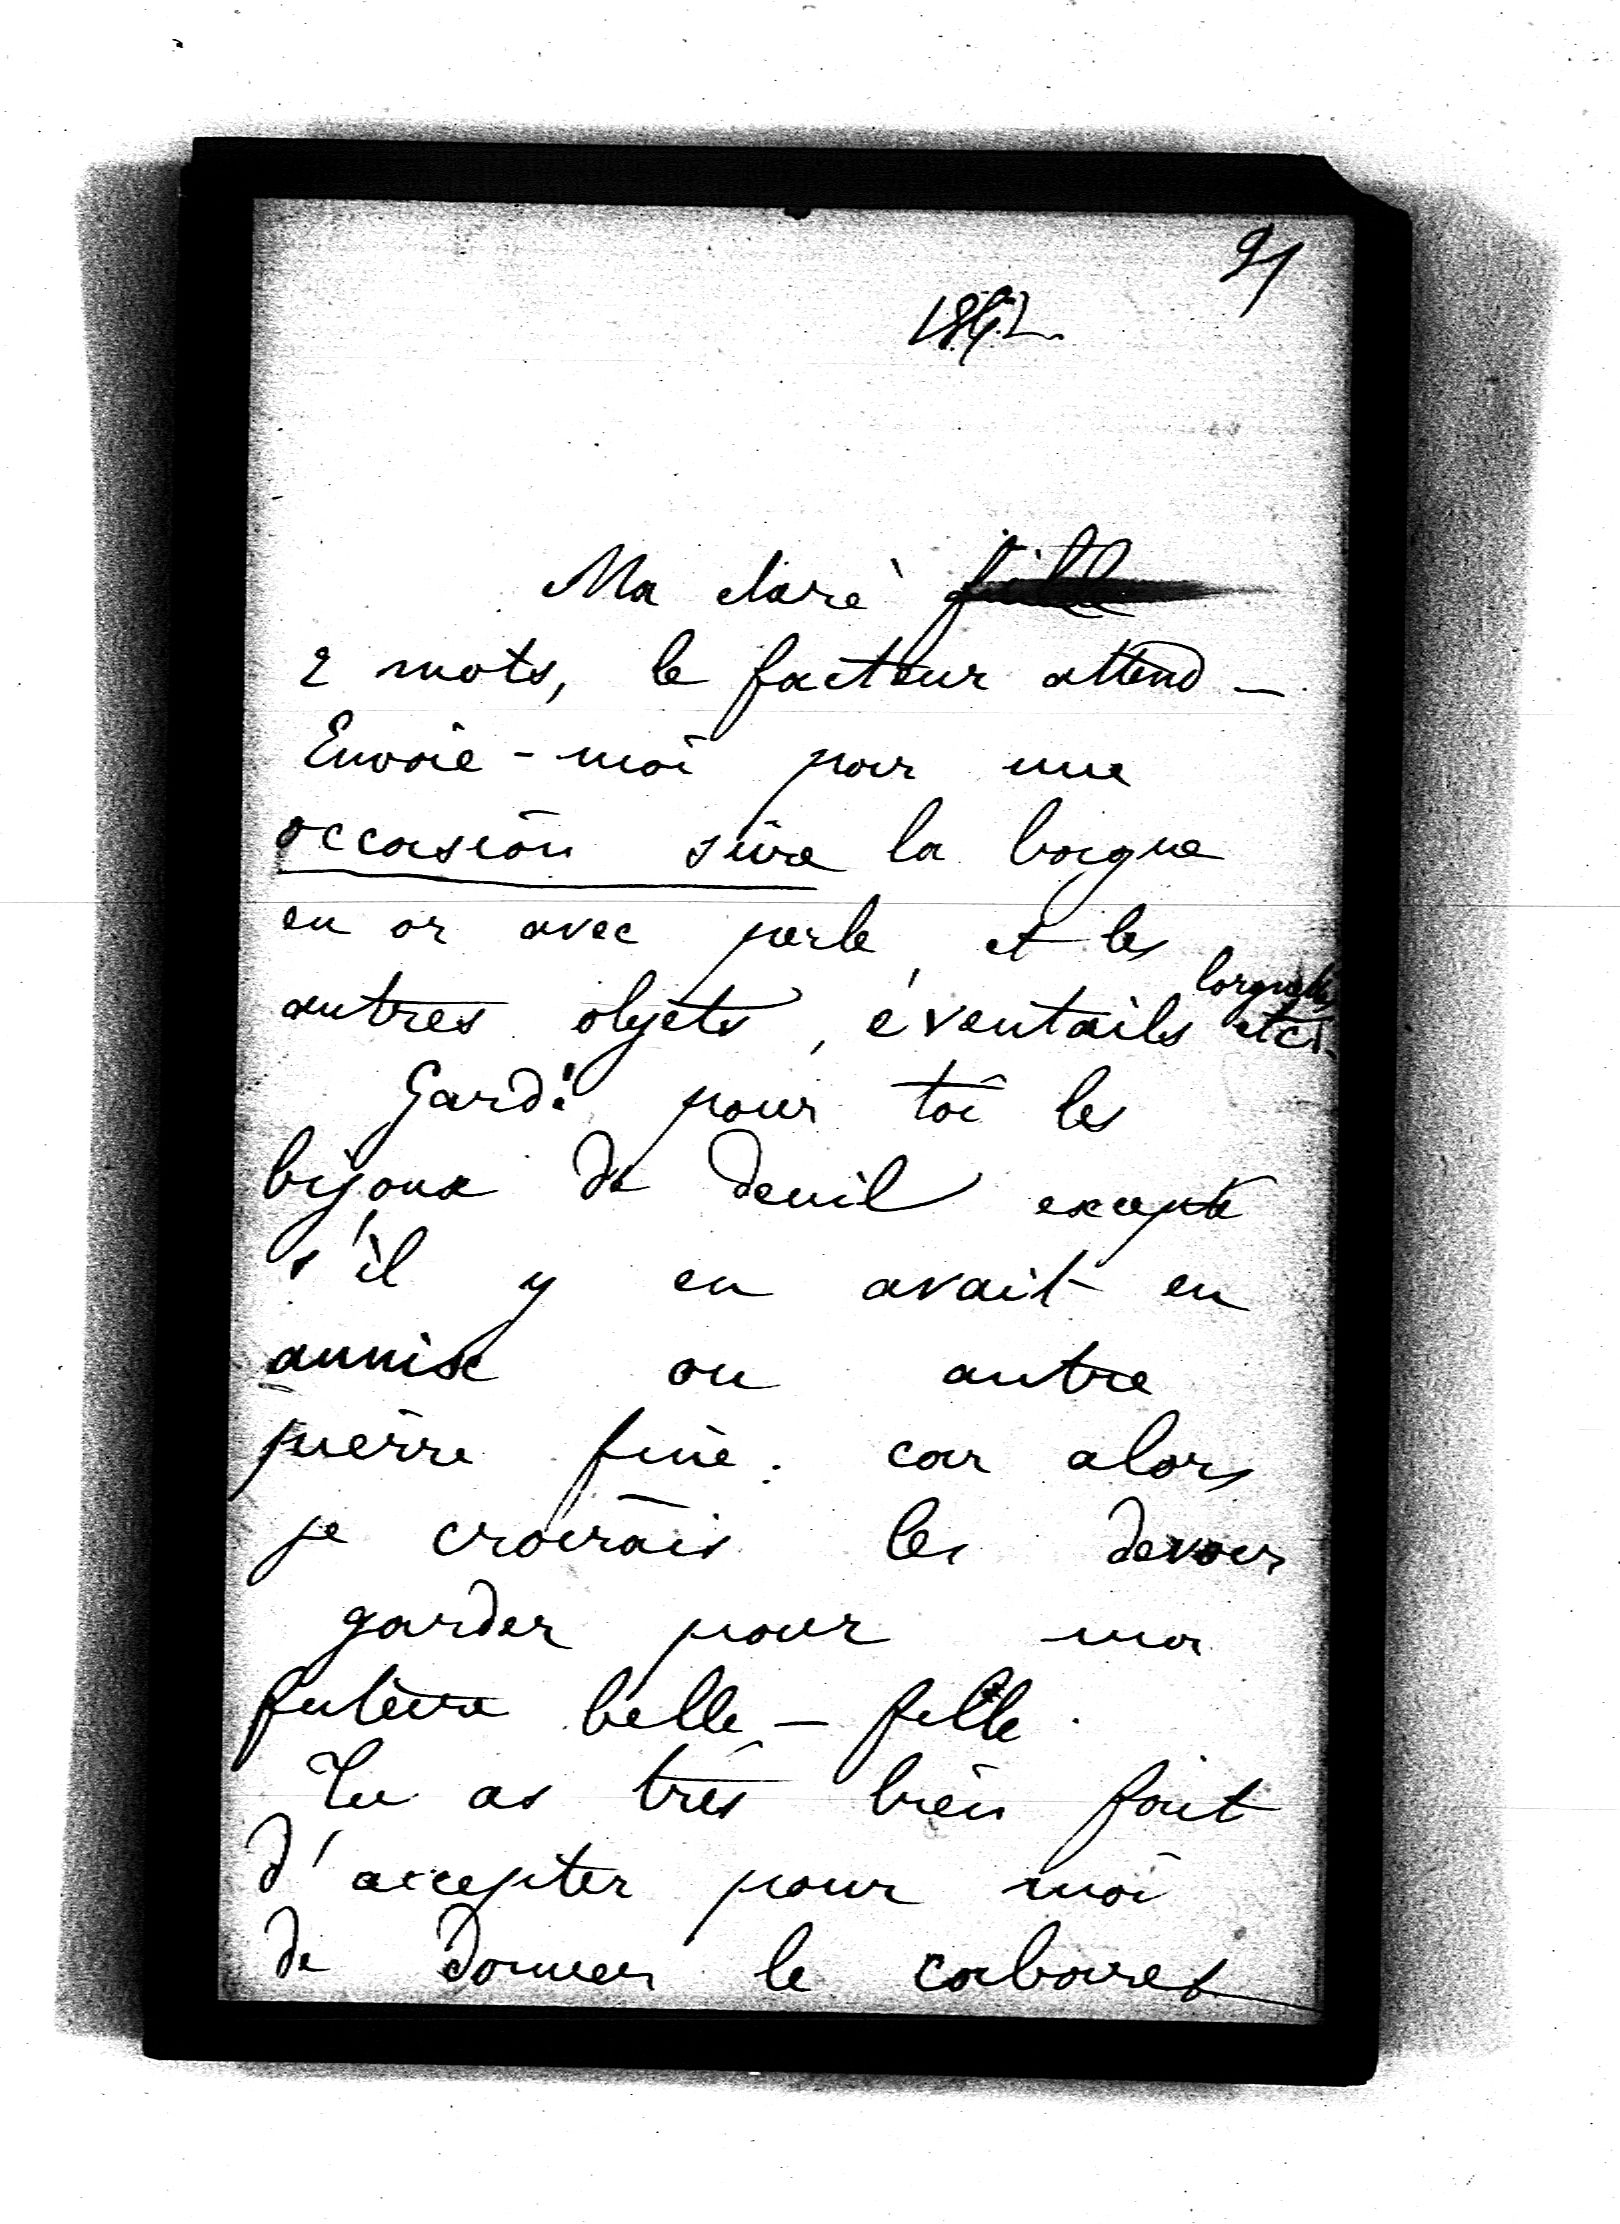 91
1862
Ma chère fille
2 mots, le facteur attend —
Envoie-moi par une
occasion sûre la bague
en or avec perle, et les
autres objets, éventails lorgnette etc.
Garde pour toi les
bijoux de deuil excepté
s'il y en avait en
onnix ou autre
pierre fine. car alors
je croirais les devoir
garder pour ma
future belle-fille.
Tu as très bien fait
d'accepter pour moi
de donner le cabaret